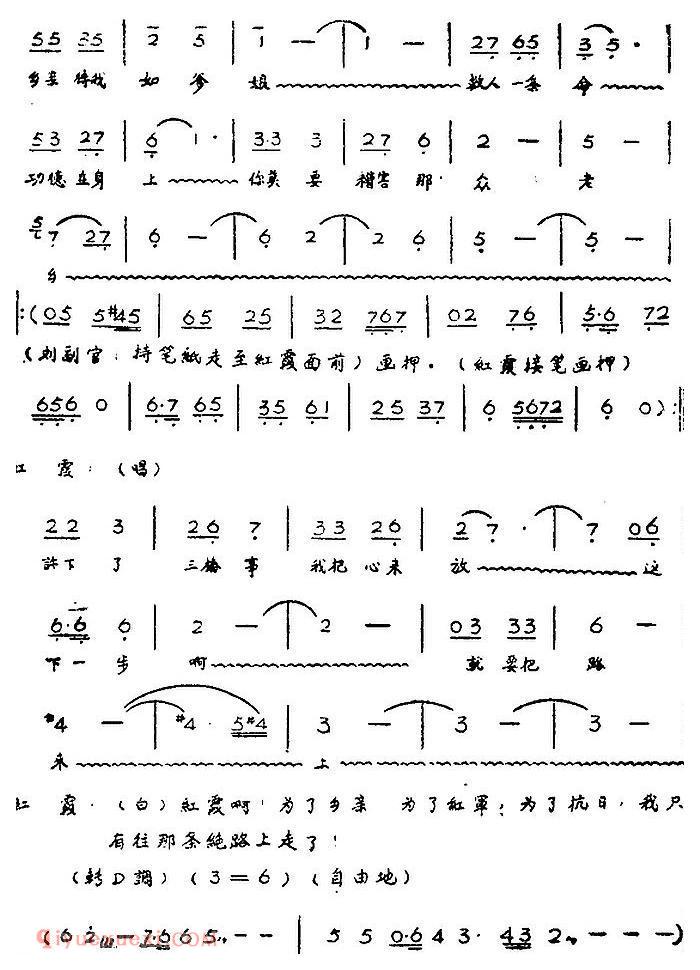 55 35 | 2 5 | 1 — | 1 — | 27 65 | 3 5· |
乡亲待我 如爹娘 救人一条命
53 27 | 6 1· | 3·3 3 | 27 6 | 2 — | 5 — |
功德在身上 你莫要糟害那众老
7 27 | 6 — | 6 2 | 2 6 | 5 — | 5 — |
乡
(05 5#45 | 65 25 | 32 767 | 02 76 | 5·6 72
(刘副官:持笔紙走至紅霞面前)画押。(紅霞接笔画押)
656 0 | 6·7 65 | 35 61 | 25 37 | 6 5672 | 6 0):
紅霞:(唱)
22 3 | 26 7 | 33 26 | 2 7· | 7 06
許下了 三椿事 我把心来放 这
6·6 6 | 2 — | 2 — | 03 33 | 6 —
下一步啊 就要把路
#4 — | #4· 5#4 | 3 — | 3 — | 3 —
来 上
紅霞:(白)紅霞啊!为了乡亲 为了紅軍;为了抗日,我只
有往那条絶路上走了!
(轉D調)(3=6)(自由地)
(6 2 — 7665 — — | 5 5 0·643· 432 — — —)